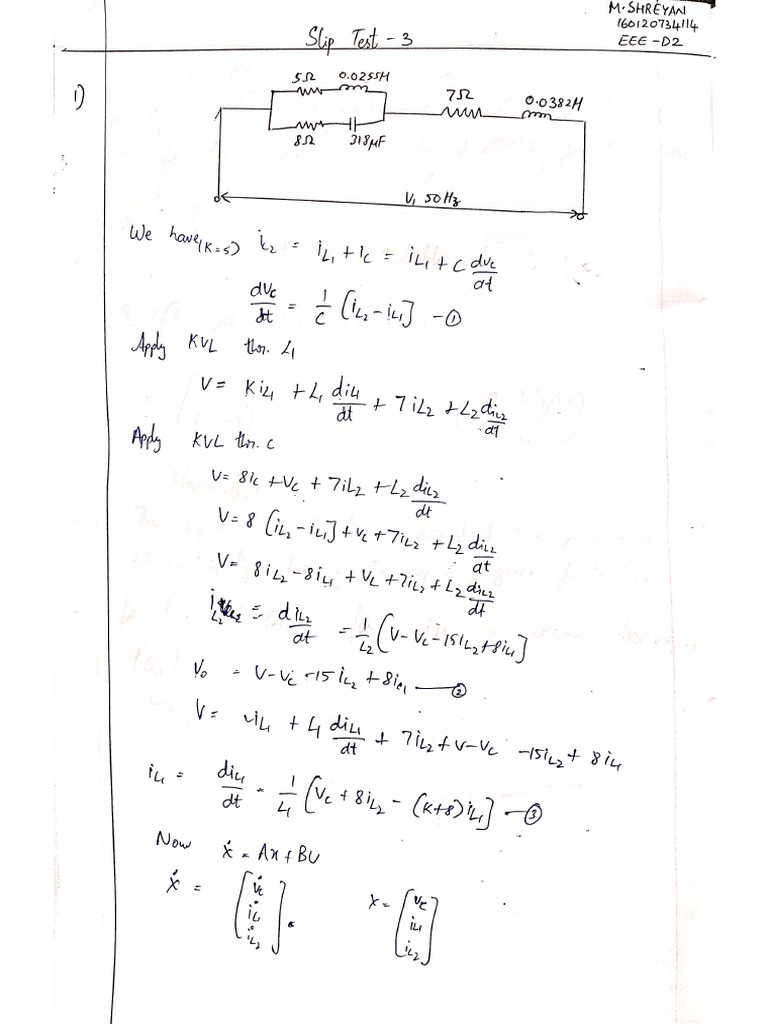 M. SHREYAN
160120734114
EEE - D2
Slip Test - 3
1)
5Ω 0.0255H
7Ω 0.0382H
8Ω 318μF
V, 50Hz
We have (K=5) iL2 = iL1 + ic = iL1 + C dvc/dt
dvc/dt = 1/C [iL2 - iL1] - ①
Apply KVL thr. L1
V = K iL1 + L1 diL1/dt + 7 iL2 + L2 diL2/dt
Apply KVL thr. C
V = 8ic + vc + 7iL2 + L2 diL2/dt
V = 8 [iL2 - iL1] + vc + 7iL2 + L2 diL2/dt
V = 8iL2 - 8iL1 + vc + 7iL2 + L2 diL2/dt
iL2 = diL2/dt = 1/L2 [V - Vc - 15iL2 + 8iL1]
V0 = V - Vc - 15 iL2 + 8iL1 — ②
V = iL1 + L1 diL1/dt + 7iL2 + V - Vc - 15iL2 + 8iL1
iL1 = diL1/dt = 1/L1 [Vc + 8iL2 - (K+8) iL1] — ③
Now ẋ = Ax + BU
ẋ = [v̇c i̇L1 i̇L2] . x = [vc iL1 iL2]